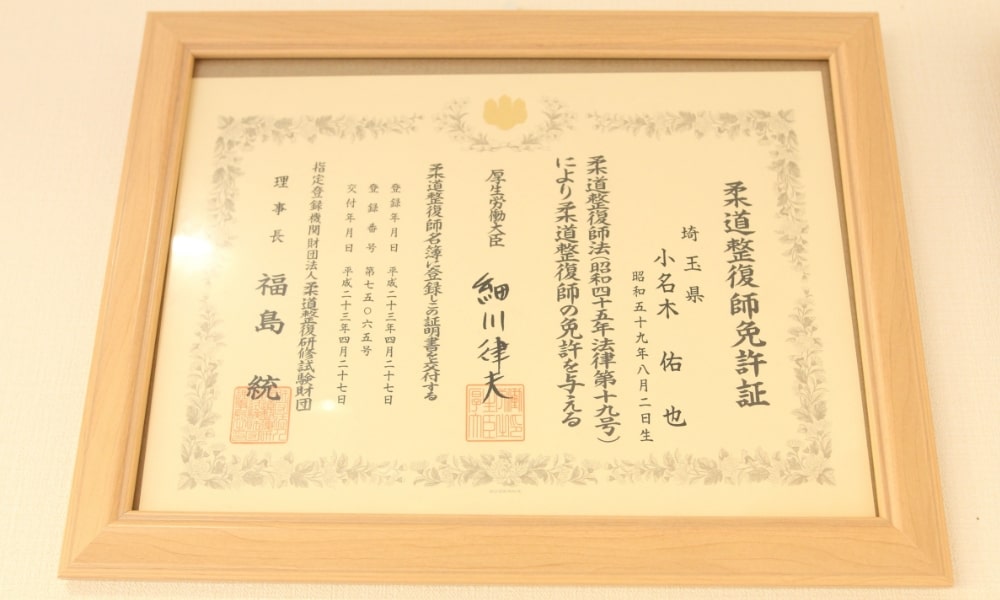 柔道整復師免許証
埼玉県
小名木佑也
昭和五十九年八月二日生
柔道整復師法(昭和四十五年法律第十九号)
により柔道整復師の免許を与える
厚生労働大臣 細川律夫
柔道整復師名簿に登録しこの証明書を交付する
登録年月日 平成二十三年四月二十七日
登録番号 第七五〇六五号
交付年月日 平成二十三年四月二十七日
指定登録機関財団法人柔道整復研修試験財団
理事長 福島統